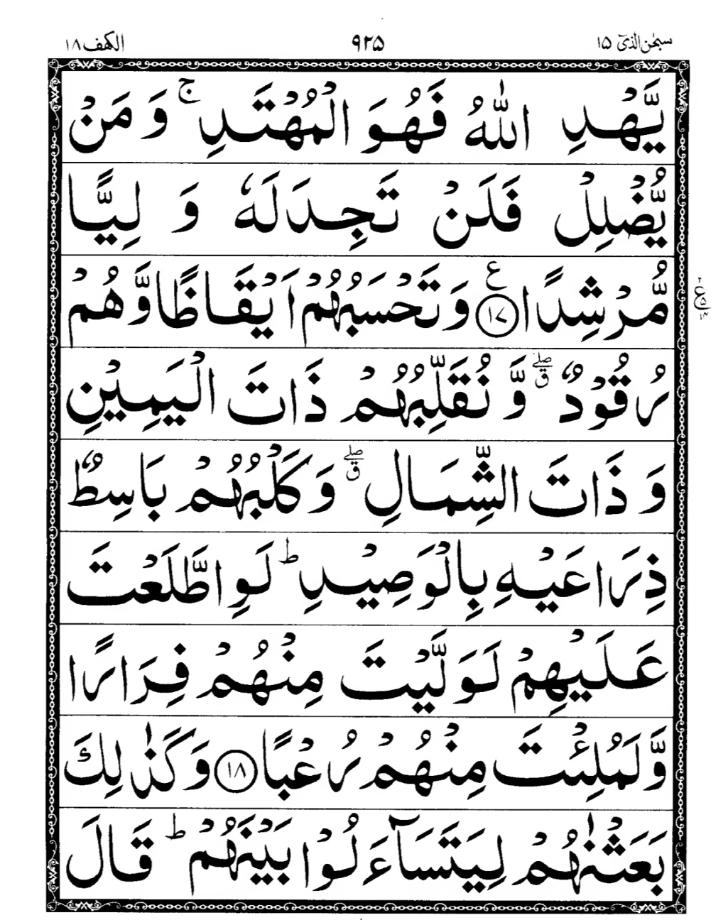 سبحٰن الذیٓ ۱۵ ۹۲۵ الکهف ۱۸
يَّهْدِ اللّٰهُ فَهُوَ الْمُهْتَدِ ۚ وَ مَنْ
يُّضْلِلْ فَلَنْ تَجِدَ لَهٗ وَ لِيًّا
مُّرْشِدًا ۝۱۷ ع وَ تَحْسَبُهُمْ اَيْقَاظًا وَّ هُمْ
رُقُوْدٌ ۖۗ وَّ نُقَلِّبُهُمْ ذَاتَ الْيَمِيْنِ
وَ ذَاتَ الشِّمَالِ ۖۗ وَ كَلْبُهُمْ بَاسِطٌ
ذِرَاعَيْهِ بِالْوَصِيْدِ ؕ لَوِ اطَّلَعْتَ
عَلَيْهِمْ لَوَلَّيْتَ مِنْهُمْ فِرَارًا
وَّ لَمُلِئْتَ مِنْهُمْ رُعْبًا ۝۱۸ وَ كَذٰلِكَ
بَعَثْنٰهُمْ لِيَتَسَآءَلُوْا بَيْنَهُمْ ؕ قَالَ
ع